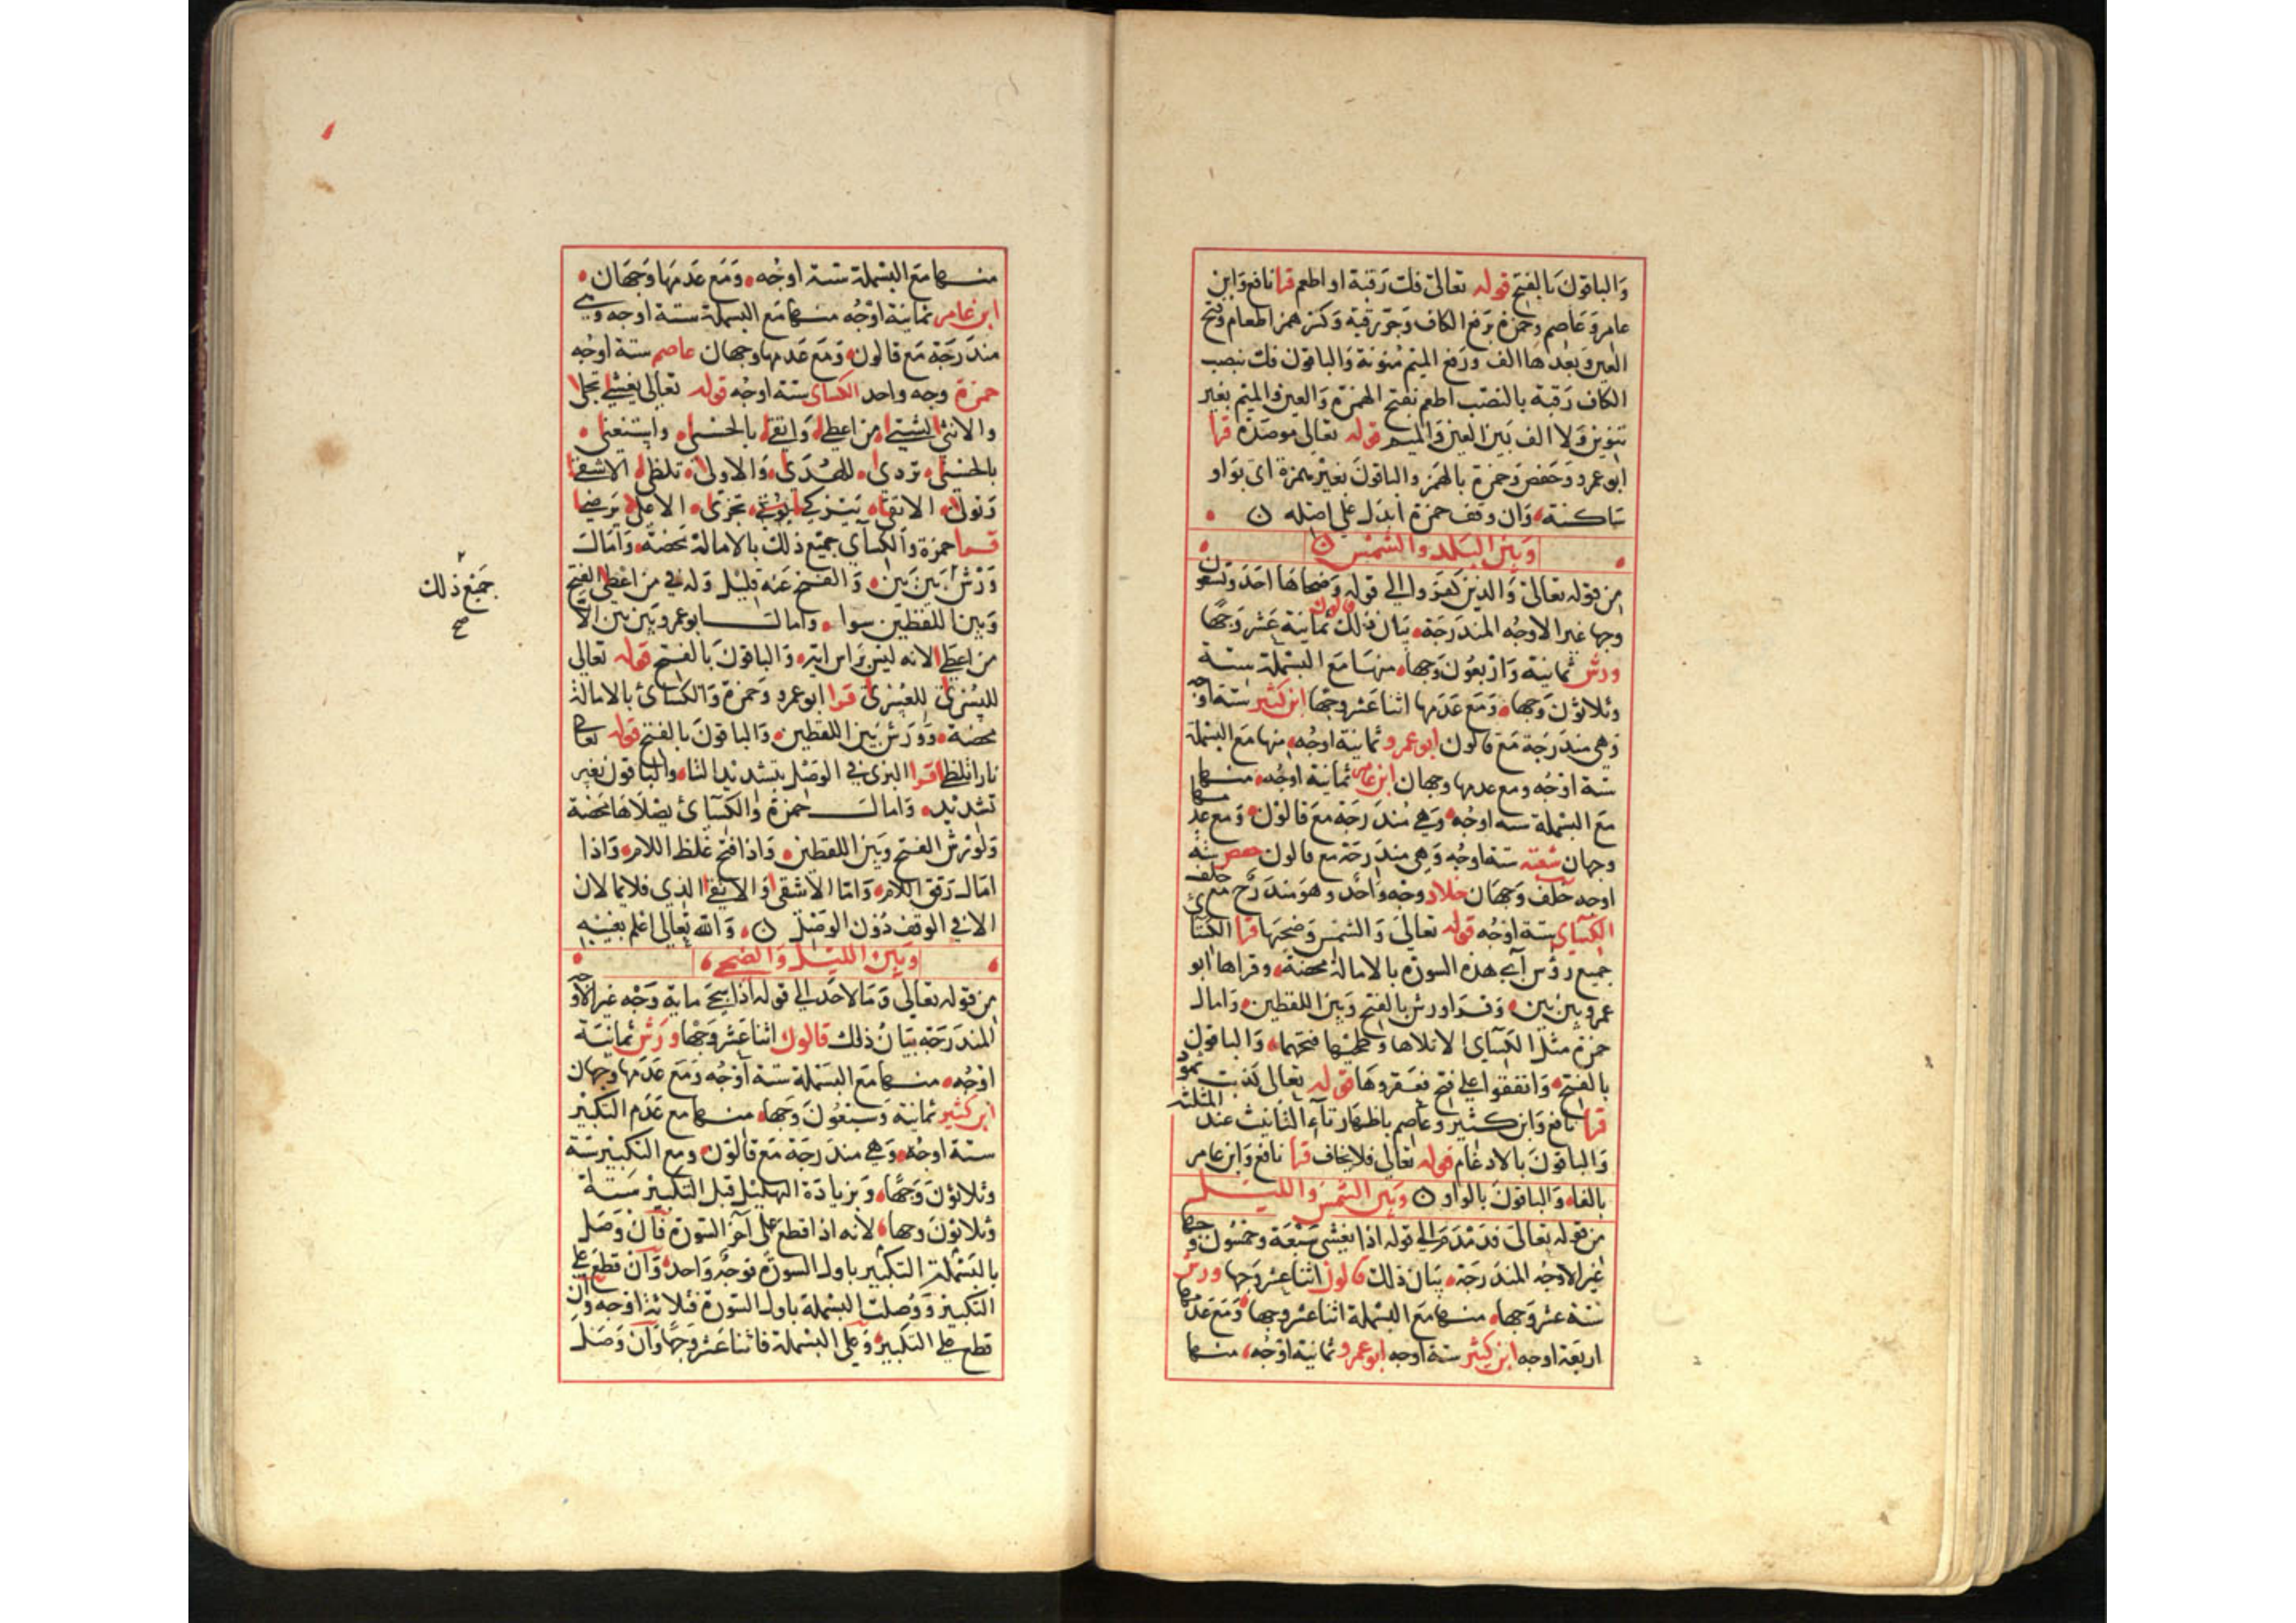 والباقون بالفتح قوله تعالى فك رقبة او اطعم قرا نافع وابن
عامر وعاصم وحمزة برفع الكاف وجر رقبة وكسر همز اطعام وفتح
العين وبعدها الف ورفع الميم منونة والباقون فك بنصب
الكاف رقبة بالنصب اطعم بفتح الهمزة والعين والميم بغير
تنوين ولا الف بين العين والميم قوله تعالى موصدة قرا
ابو عمرو وحفص وحمزة بالهمز والباقون بغير همزة اي بواو
ساكنة وان وقف حمزة ابدل على اصله
وبين البلد والشمس
من قوله تعالى والذين كفروا الى قوله وضحاها احد وتسعون
وجها غير الاوجه المندرجة بيان ذلك قالون ثمانية عشر وجها
ورش ثمانية واربعون وجها منها مع البسملة ستة
وثلاثون وجها ومع عدمها اثنا عشر وجها ابن كثير ستة اوجه
وهي مندرجة مع قالون ابو عمرو ثمانية اوجه منها مع البسملة
ستة اوجه ومع عدمها وجهان ابن عامر ثمانية اوجه منها
مع البسملة سته اوجه وهي مندرجة مع قالون ومع عدمها
وجهان شعبه ستة اوجه وهي مندرجة مع قالون حفص ستة
اوجه خلف وجهان خلاد وجه واحد وهو مندرج مع خلف
الكساي ستة اوجه قوله تعالى والشمس وضحها قرا الكسائي
جميع رؤس آي هذه السورة بالامالة محضة وقراها ابو
عمرو بين بين وقرا ورش بالفتح وبين اللفظين وامال
حمزة مثل الكساي الا تلاها وطحيها فتحهما والباقون
بالفتح واتفقوا على فتح فعقروها قوله تعالى كذبت ثمود
قرا نافع وابن كثير وعاصم باظهار تاء التانيث عند المثلثة
والباقون بالادغام قوله تعالى فلا يخاف قرا نافع وابن عامر
بالفاء والباقون بالواو وبين الشمس والليل
من قوله تعالى فدمدم الى قوله اذا يغشى سبعة وخمسون وجها
غير الاوجه المندرجة بيان ذلك قالون اثنا عشر وجها ورش
ستة عشر وجها منها مع البسملة اثنا عشر وجها ومع عدمها
اربعة اوجه ابن كثير ستة اوجه ابو عمرو ثمانية اوجه منها
منها مع البسملة ستة اوجه ومع عدمها وجهان
ابن عامر ثمانية اوجه منها مع البسملة ستة اوجه وهي
مندرجة مع قالون ومع عدمها وجهان عاصم ستة اوجه
حمزة وجه واحد الكساي ستة اوجه قوله تعالى يغشى تجلى
والانثى لشتى من اعطى واتقى بالحسنى واستغنى
بالحسنى تردى للهدى والاولى تلظى الاشقى
وتولى الاتقى يتزكى تجزى الاعلى يرضى
قرا حمزة والكسآي جميع ذلك بالامالة محضة وامال
ورش بين بين والفتح عنه قليل وله في من اعطى الفتح
وبين اللفظين سوا وامال ابو عمرو بين بين الا
من اعطى لانه ليس براس اية والباقون بالفتح قوله تعالى
لليسرى للعسرى قرا ابو عمرو وحمزة والكسائي بالامالة
محضة وورش بين اللفظين والباقون بالفتح قوله تعالى
نارا تلظى قرا البزي في الوصل بتشديد التاء والباقون بغير
تشديد وامال حمزة والكسآئي يصلاها محضة
ولورش الفتح وبين اللفظين واذا فتح غلظ اللام واذا
امال رقق اللام واما الاشقى والاتقى الذي فلا يمالان
الا في الوقف دون الوصل والله تعالى اعلم بغيبه
وبين الليل والضحى
من قوله تعالى وما لاحد الى قوله اذا سجى ماية وجه غير الاوجه
المندرجة بيان ذلك قالون اثنا عشر وجها ورش ثمانية
اوجه منها مع البسملة ستة اوجه ومع عدمها وجهان
ابن كثير ثمانية وسبعون وجها منها مع عدم التكبير
ستة اوجه وهي مندرجة مع قالون ومع التكبير ستة
وثلاثون وجها وبزيادة التهليل قبل التكبير ستة
وثلاثون وجها لانه اذا قطع على آخر السورة فان وصل
بالبسملة التكبير باول السورة فوجه واحد وان قطع على
التكبير ووصلت البسملة باول السورة فثلاثة اوجه وان
قطع على التكبير وعلى البسملة فاثنا عشر وجها وان وصل
جميع ذلك
صح